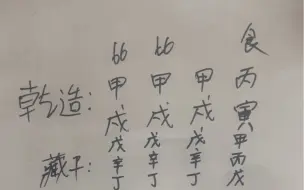 比 比 食
乾造: 甲 甲 甲 丙
戌 戌 戌 寅
藏干: 戊 戊 戊 甲
辛 辛 辛 丙
丁 丁 丁 戊